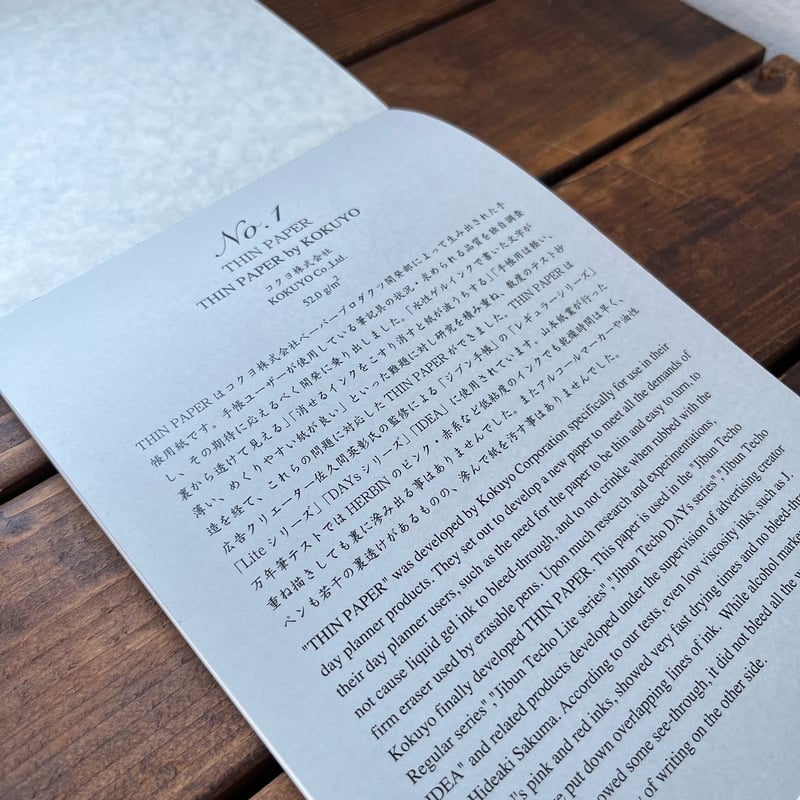 No. 1
THIN PAPER
THIN PAPER by KOKUYO
コクヨ株式会社
KOKUYO Co.,Ltd.
52.0 g/m²
THIN PAPER はコクヨ株式会社ペーパープロダクツ開発部によって生み出された手
帳用紙です。手帳ユーザーが使用している筆記具の状況・求められる品質を独自調整
し、その期待に応えるべく開発に乗り出しました。「水性ゲルインクで書いた文字が
裏から透けて見える」「消せるインクをこすり消すと紙が波うちする」「手帳用は軽い、
薄い、めくりやすい紙が良い」といった難題に対し研究を積み重ね、数度のテスト抄
造を経て、これらの問題に対応した THIN PAPER ができました。THIN PAPER は
広告クリエーター佐久間英彰氏の監修による「ジブン手帳」の「レギュラーシリーズ」
「Lite シリーズ」「DAYs シリーズ」「IDEA」に使用されています。山本紙業が行った
万年筆テストでは HERBIN のピンク・赤系など低粘度のインクでも乾燥時間は早く、
重ね描きしても裏に滲み出る事はありませんでした。またアルコールマーカーや油性
ペンも若干の裏透けがあるものの、滲んで紙を汚す事はありませんでした。
"THIN PAPER" was developed by Kokuyo Corporation specifically for use in their
day planner products. They set out to develop a new paper to meet all the demands of
their day planner users, such as the need for the paper to be thin and easy to turn, to
not cause liquid gel ink to bleed-through, and to not crinkle when rubbed with the
firm eraser used by erasable pens. Upon much research and experimentations,
Kokuyo finally developed THIN PAPER. This paper is used in the "Jibun Techo
Regular series","Jibun Techo Lite series","Jibun Techo DAYs series","Jibun Techo
IDEA" and related products developed under the supervision of advertising creator
Hideaki Sakuma. According to our tests, even low viscosity inks, such as J.
pink and red inks, showed very fast drying times and no
put down overlapping lines of ink. While alcohol
some see-through, it did not bleed all the
of writing on the other side.